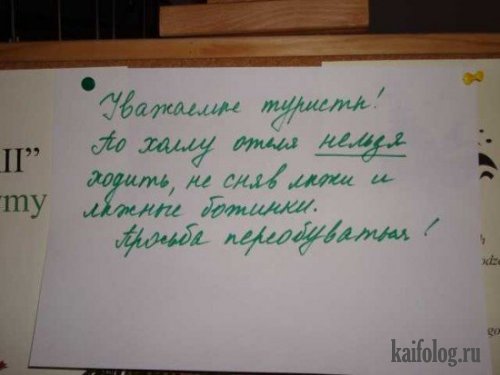 Уважаемые туристы!
По холлу отеля нельзя
ходить, не сняв лыжи и
лыжные ботинки.
Просьба переобуваться!
II”
ymy
h
odze
go
kaifolog.ru